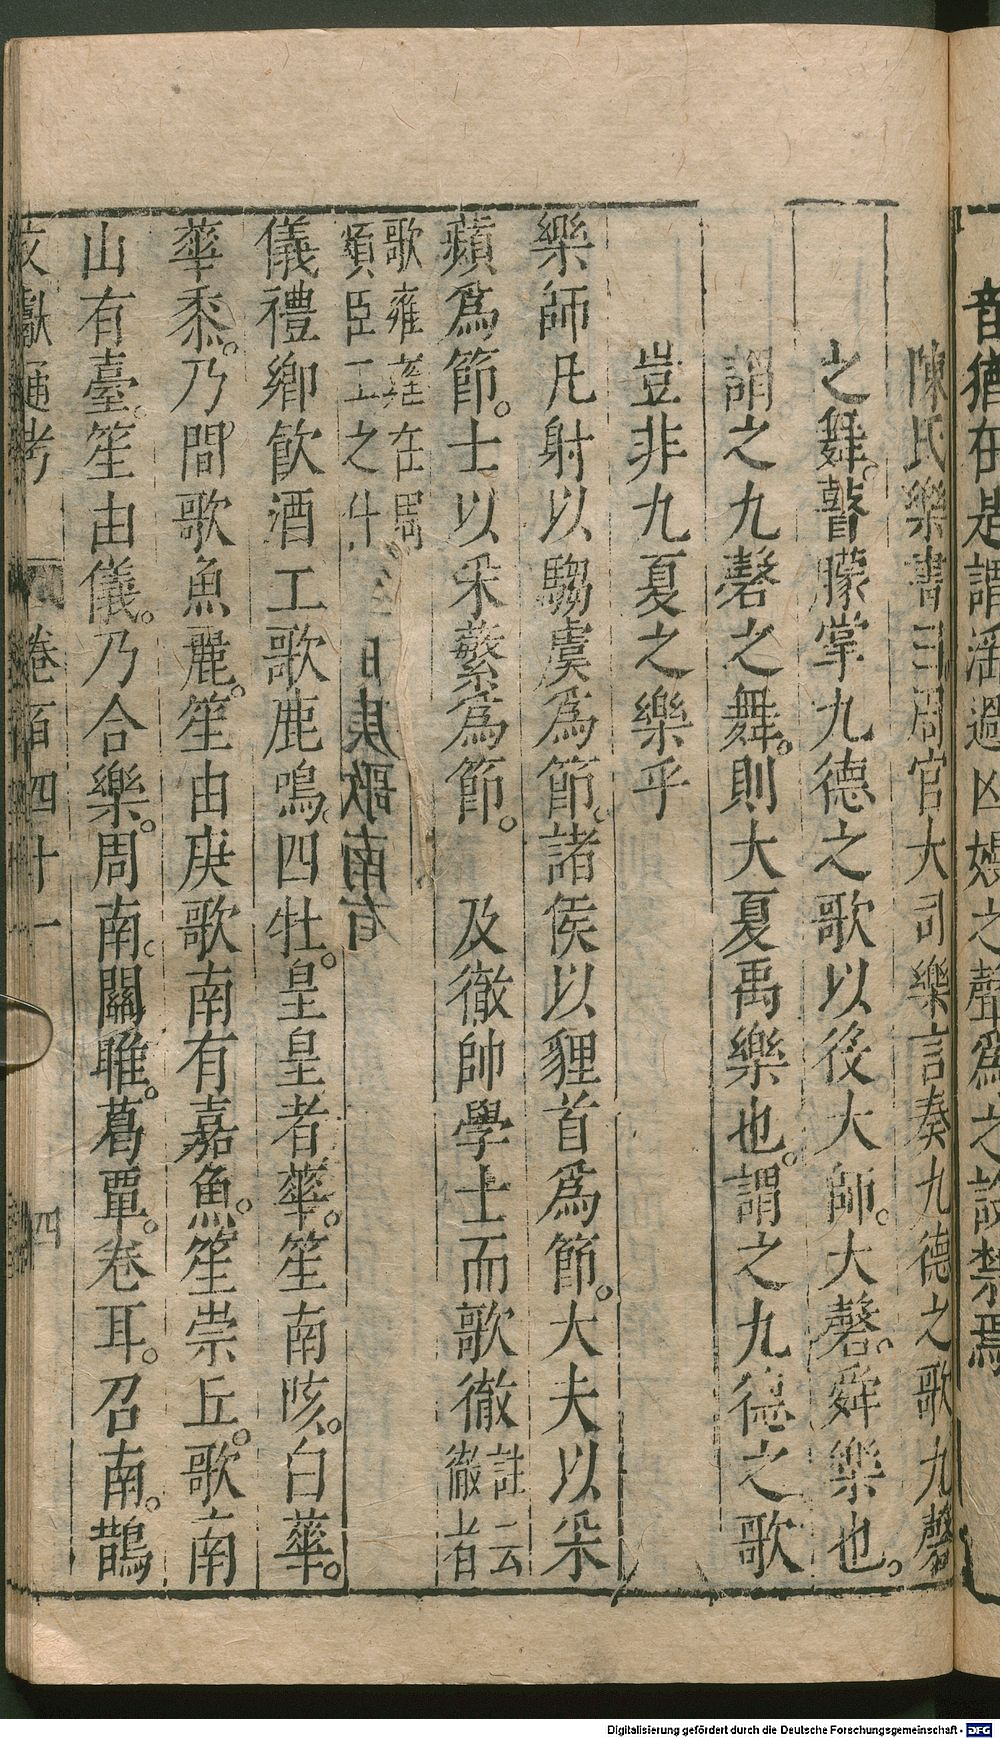 音猶在是謂淫過凶嫚之聲爲之設禁焉
陳氏樂書曰周官大司樂言奏九德之歌九磬
之舞。瞽矇掌九德之歌以役大師。大磬。舜樂也。
謂之九磬之舞。則大夏禹樂也。謂之九德之歌
豈非九夏之樂乎
樂師凡射以騶虞爲節。諸侯以貍首爲節。大夫以采
蘋爲節。士以采蘩爲節。 及徹帥學士而歌徹
註云
徹者
歌雍雍在周
頌臣工之什
儀禮鄉飲酒工歌鹿鳴。四牡。皇皇者華。笙南陔。白華。
華黍。乃間歌魚麗。笙由庚歌南有嘉魚。笙崇丘。歌南
山有臺。笙由儀。乃合樂。周南。關雎。葛覃。卷耳。召南。鵲
文獻通考 卷百四十一 四
Digitalisierung gefördert durch die Deutsche Forschungsgemeinschaft - DFG